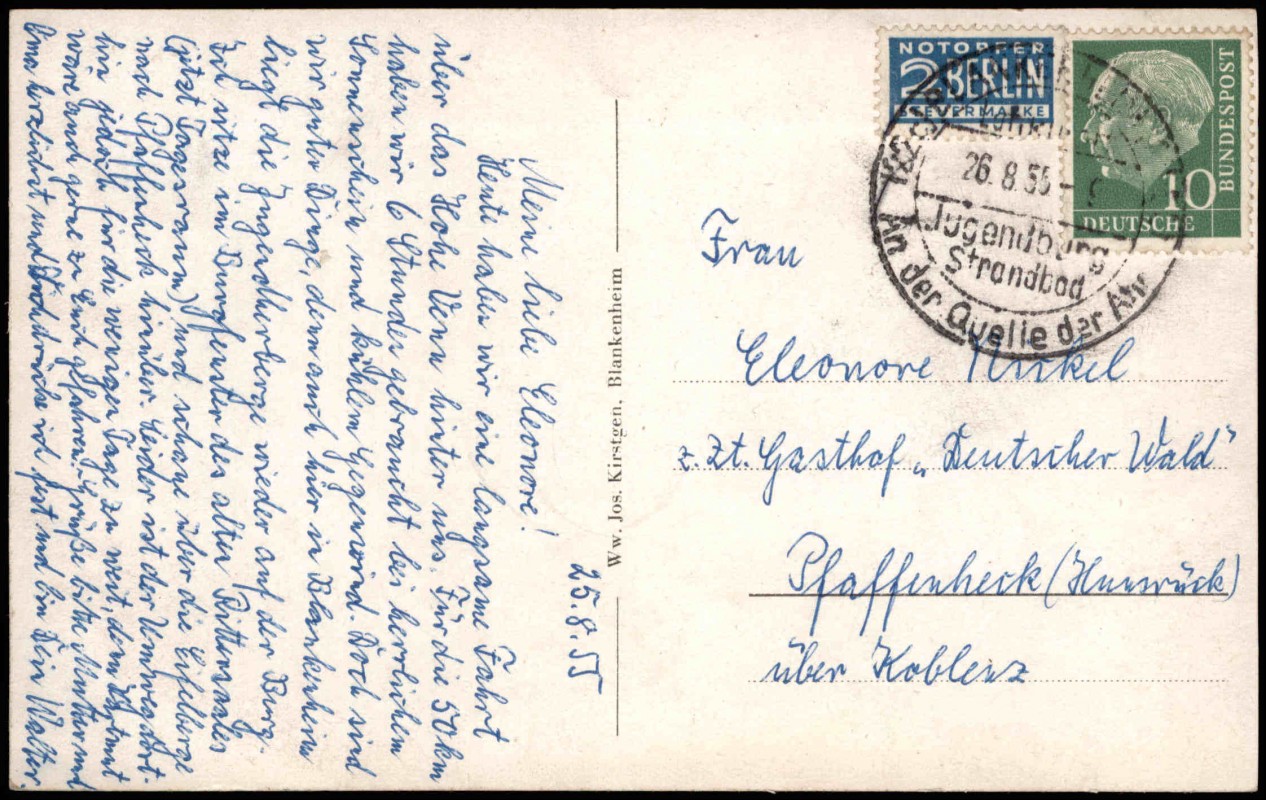 25.8.55
Meine liebe Eleonore!
Heute haben wir eine langsame Fahrt
über das Hohe Venn hinter uns. Für die 50 km
haben wir 6 Stunden gebraucht bei herrlichem
Sonnenschein und kühlem Gegenwind. Doch sind
wir guter Dinge, denn auch hier in Blankenheim
liegt die Jugendherberge wieder auf der Burg.
Ich sitze im Burgfenster des alten Rittersaales
(jetzt Tagesraum) und schaue über die Eifelberge
nach Pfaffenheck hinüber. Leider ist der Umweg dort-
hin jedoch für die wenigen Tage zu weit, denn
wäre auch gerne zu Euch gefahren. Grüße bitte Mutter und
Oma herzlichst und Dich drücke ich fest und bin Dein Walter.
Ww. Jos. Kirstgen, Blankenheim
NOTOPFER
2 BERLIN
STEUERMARKE
DEUTSCHE
BUNDESPOST
10
26.8.55
Jugendburg
Strandbad
An der Quelle der Ahr
Frau
Eleonore Nickel
z. Zt. Gasthof „Deutscher Wald"
Pfaffenheck (Hunsrück)
über Koblenz